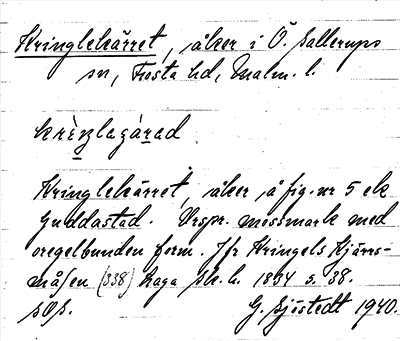 Kringlekärret, åker i Ö. Sallerups
sn, Frosta hd, Malm. l.
krìŋlagárad
Kringlekärret, åker å fig. nr 5 ek
Guddastad. Urspr. mossmark med
oregelbunden form. Jfr Kringels Kjärrs-
måsen (338) Laga sk. h. 1834 s. 38.
sOs.
G. Sjöstedt 1940.